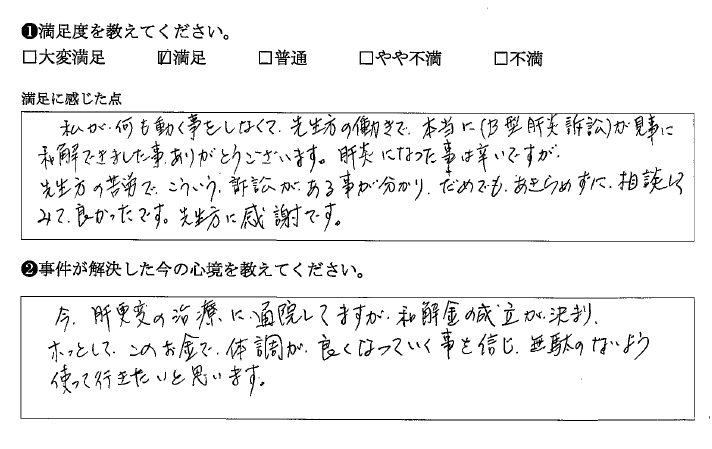 ❶満足度を教えてください。
□大変満足 ☑満足 □普通 □やや不満 □不満
満足に感じた点
私が、何も動く事をしなくて、先生方の働きで、本当に(B型肝炎訴訟)が見事に
和解できました事、ありがとうございます。肝炎になった事は辛いですが、
先生方の苦労で、こういう、訴訟が、ある事が分かり、だめでも、あきらめずに、相談して
みて、良かったです。先生方に感謝です。
❷事件が解決した今の心境を教えてください。
今、肝更変の治療に、通院してますが、和解金の成立が、決まり、
ホッとして、このお金で、体調が、良くなっていく事を信じ、無駄のないよう
使って行きたいと思います。